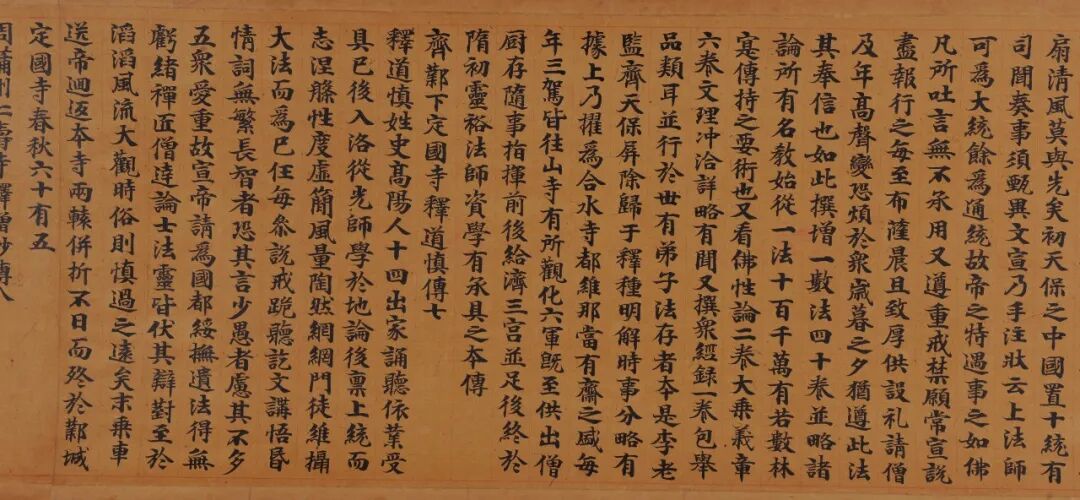 扇清風莫與先矣初天保之中國置十統有
司聞奏事須甄異文宣乃手注狀云上法師
可爲大統餘爲通統故帝之特遇事之如佛
凡所吐言無不承用又遵重戒禁願常宣說
盡報行之每至布薩晨旦致厚供設礼請僧
及年髙聲變恐煩於衆歲暮之夕猶遵此法
其奉信也如此撰增一數法四十卷並略諸
論所有名教始從一法十百千萬有若數林
寔傳持之要術也又看佛性論二卷大乘義章
六卷文理冲洽詳略有聞又撰衆經録一卷包舉
品類耳並行於世有弟子法存者本是李老
監齊天保屏除歸于釋種明解時事分略有
據上乃擢爲合水寺都維那當有齋之盛每
年三駕皆往山寺有所觀化六軍旣至供出僧
厨存隨事指揮前後給濟三宮並足後終於
隋初靈裕法師資學有承具之本傳
齊鄴下定國寺釋道慎傳七
釋道慎姓史髙陽人十四出家誦聽依業受
具已後入洛從光師學於地論後禀上統而
志涅槃性度虛簡風量陶然網綱門徒維攝
大法而爲己任每叅說戒跪聽訖文講悟昏
情詞無繁長智者恐其言少愚者慮其不多
五衆愛重故宣帝請爲國都綏撫遺法得無
虧緒禪匠僧達論士法靈皆伏其辯對至於
滔滔風流大觀時俗則慎過之遠矣末乘車
送帝迴返本寺兩轅併折不日而終於鄴城
定國寺春秋六十有五